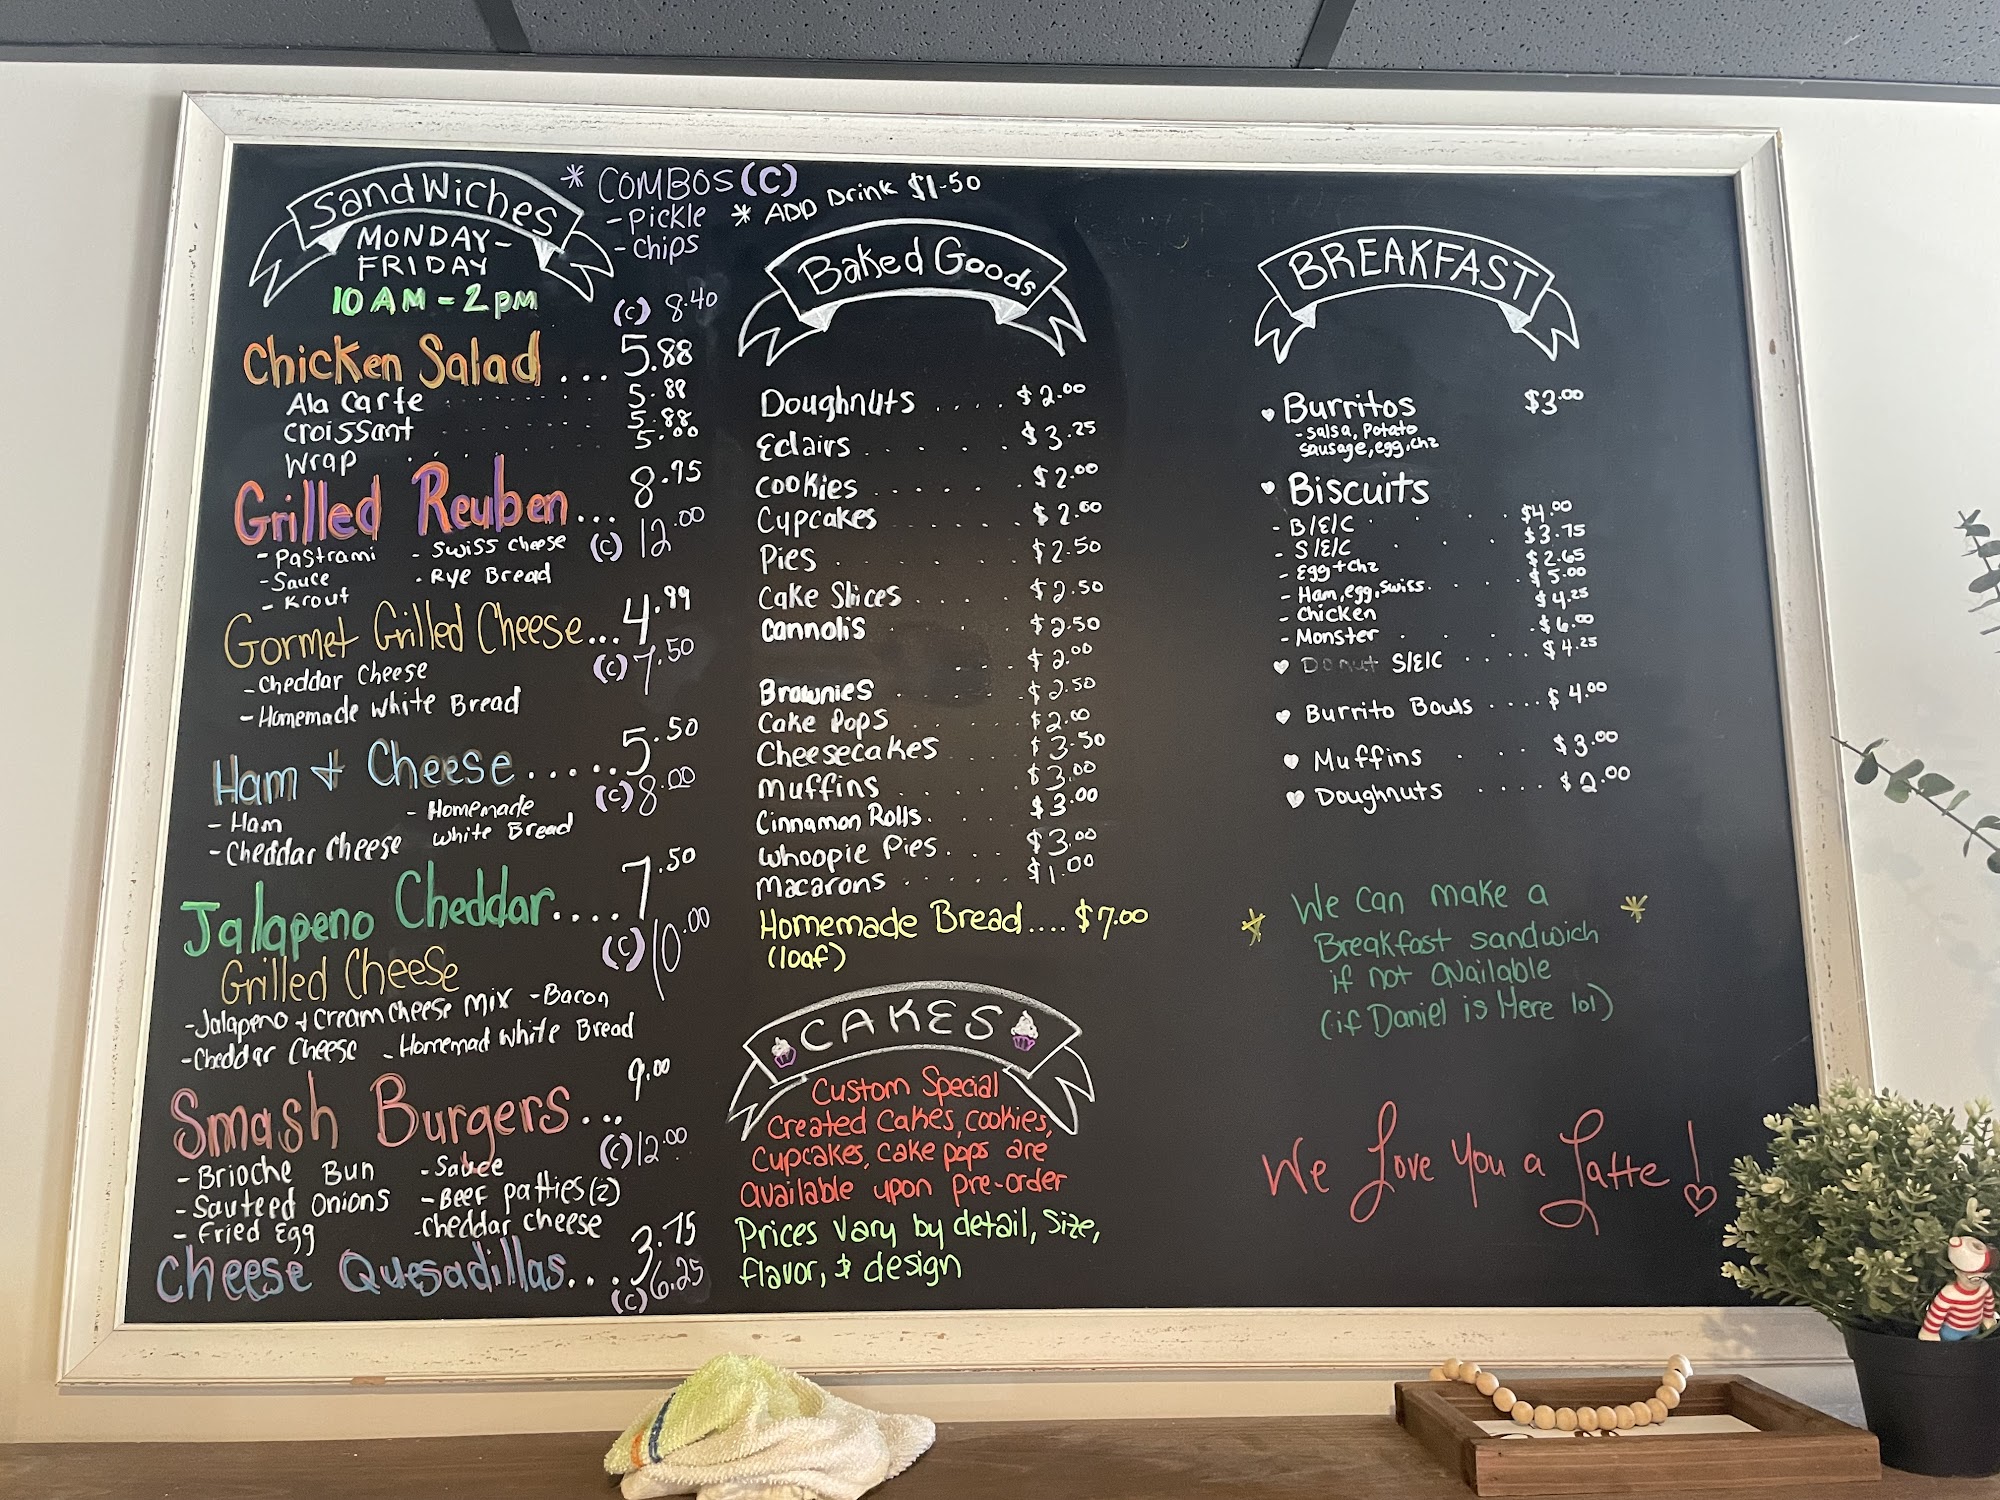 Sandwiches
MONDAY-
FRIDAY
10 AM - 2 pm
* COMBOS (C)
- Pickle
- Chips
* ADD Drink $1.50
(C) 8.40
Chicken Salad ... 5.88
Ala Carte 5.88
Croissant 5.88
Wrap 5.00
Grilled Reuben... 8.95
(C) 12.00
- Pastrami - Swiss cheese
- Sauce - Rye Bread
- Krout
Gormet Grilled Cheese... 4.99
(C) 7.50
- Cheddar Cheese
- Homemade White Bread
Ham & Cheese..... 5.50
(C) 8.00
- Ham - Homemade
- Cheddar Cheese White Bread
Jalapeno Cheddar.... 7.50
Grilled Cheese (C) 10.00
- Jalapeno & Cream Cheese Mix - Bacon
- Cheddar Cheese - Homemad White Bread
Smash Burgers... 9.00
(C) 12.00
- Brioche Bun - Sauce
- Sauteed Onions - Beef patties (2)
- Fried Egg - Cheddar cheese
Cheese Quesadillas... 3.75
(C) 6.25
Baked Goods
Doughnuts .... $2.00
Eclairs . . . . $3.25
Cookies . . . . . $2.00
Cupcakes . . . . . $2.00
Pies . . . . . $2.50
Cake Slices . . . . $2.50
Cannolis $2.50
$2.00
Brownies $2.50
Cake Pops $2.00
Cheesecakes $3.50
Muffins $3.00
Cinnamon Rolls. $3.00
Whoopie Pies. . . $3.00
Macarons . . . . $1.00
Homemade Bread .... $7.00
(loaf)
CAKES
Custom Special
Created Cakes, cookies,
Cupcakes, cake pops are
available upon pre-order
Prices vary by detail, size,
flavor, & design
BREAKFAST
Burritos $3.00
- Salsa, Potato
sausage, egg, chz
Biscuits
- B/E/C $4.00
- S/E/C $3.75
- Egg + chz $2.65
- Ham, egg, Swiss. $5.00
- Chicken $4.25
- Monster $6.00
Donut S/E/C .... $4.25
Burrito Bowls .... $4.00
Muffins $3.00
Doughnuts .... $2.00
We can make a
Breakfast sandwich
if not available
(if Daniel is Here lol)
We Love You a Latte!